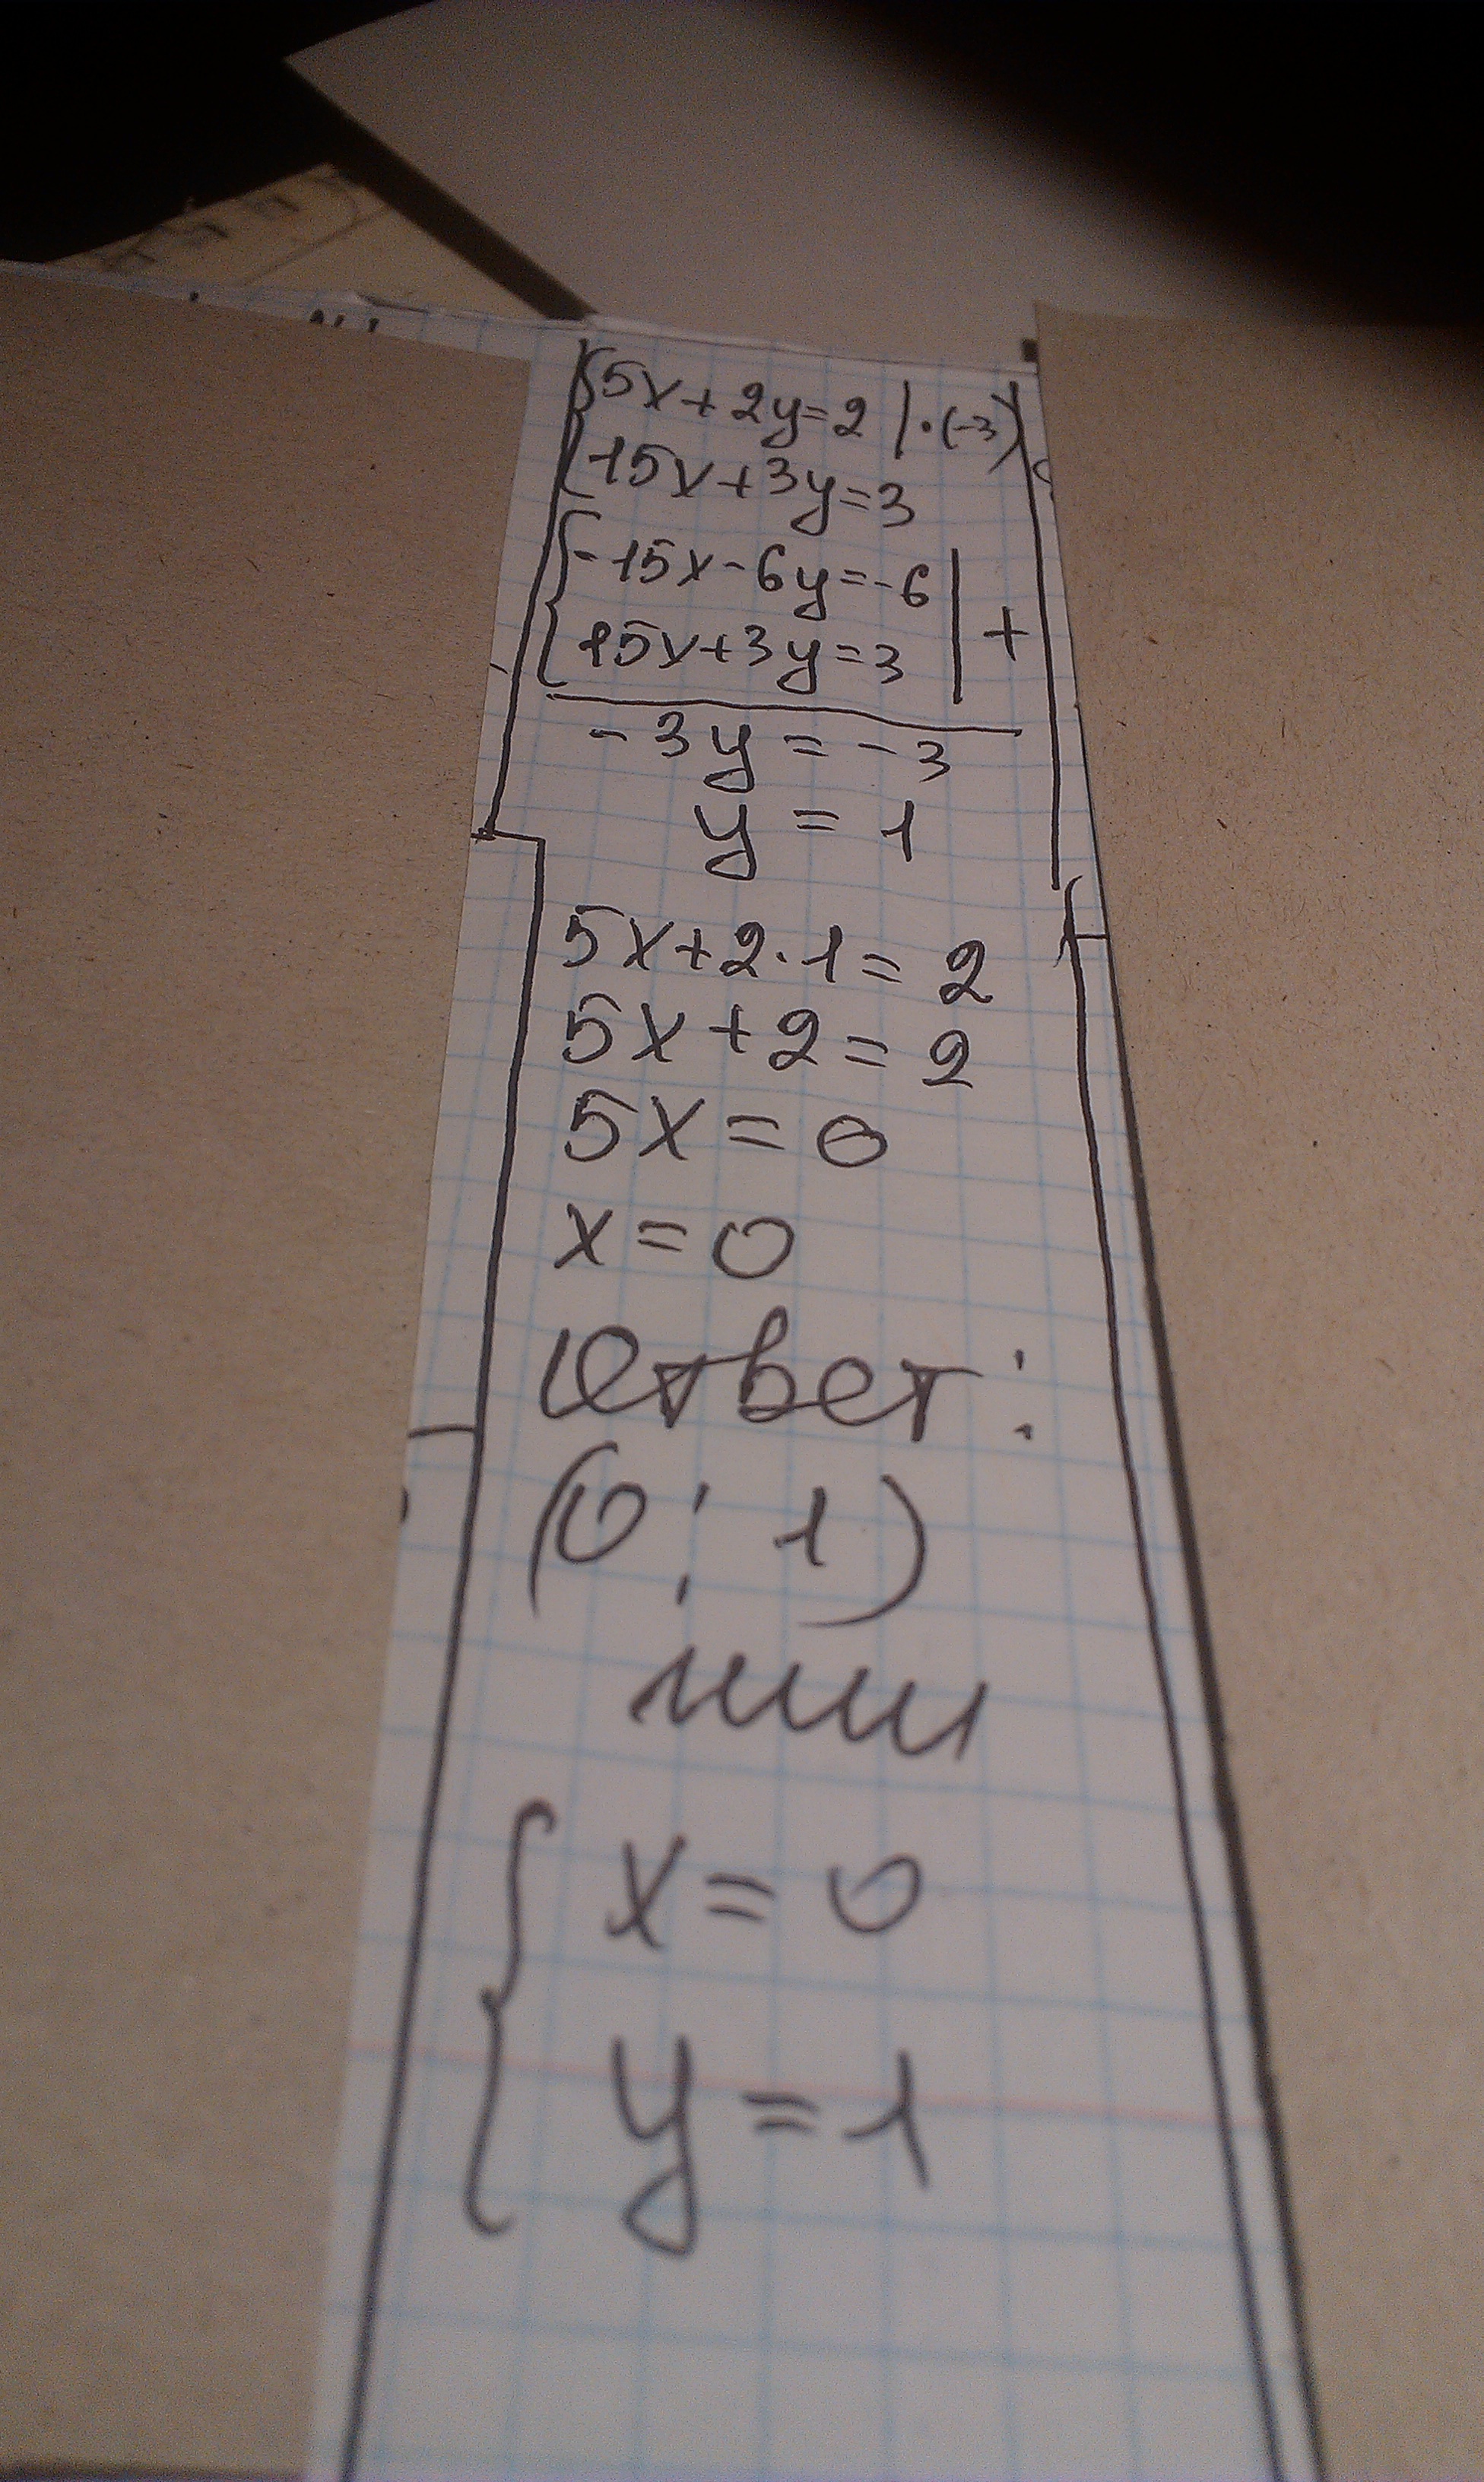 {5x+2y=2 |·(-3)
{15x+3y=3
{-15x-6y=-6 |
{15x+3y=3 | +
-3y=-3
y=1
5x+2·1=2
5x+2=2
5x=0
x=0
Ответ:
(0; 1)
или
{x=0
{y=1